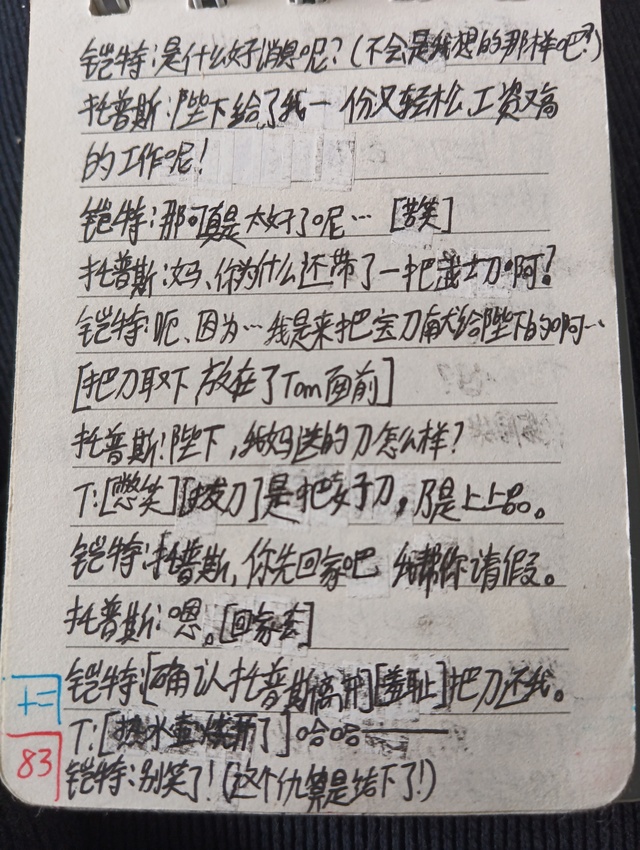 铠特:是什么好消息呢?(不会是我想的那样吧?)
托普斯:陛下给了我一份又轻松、工资又高
的工作呢!
铠特:那可真是太好了呢…[苦笑]
托普斯:妈、你为什么还带了一把武士刀啊?
铠特:呃、因为…我是来把宝刀献给陛下的啊…
[把刀取下 放在了Tom面前]
托普斯:陛下,我妈送的刀怎么样?
T:[憋笑][拔刀]是把好刀,乃是上上品。
铠特:托普斯,你先回家吧 我帮你请假。
托普斯:嗯。[回家去]
铠特:[确认托普斯离开][羞耻]把刀还我。
T:[热水壶烧开了]哈哈————
铠特:别笑了!(这个仇算是结下了!)
十二
83